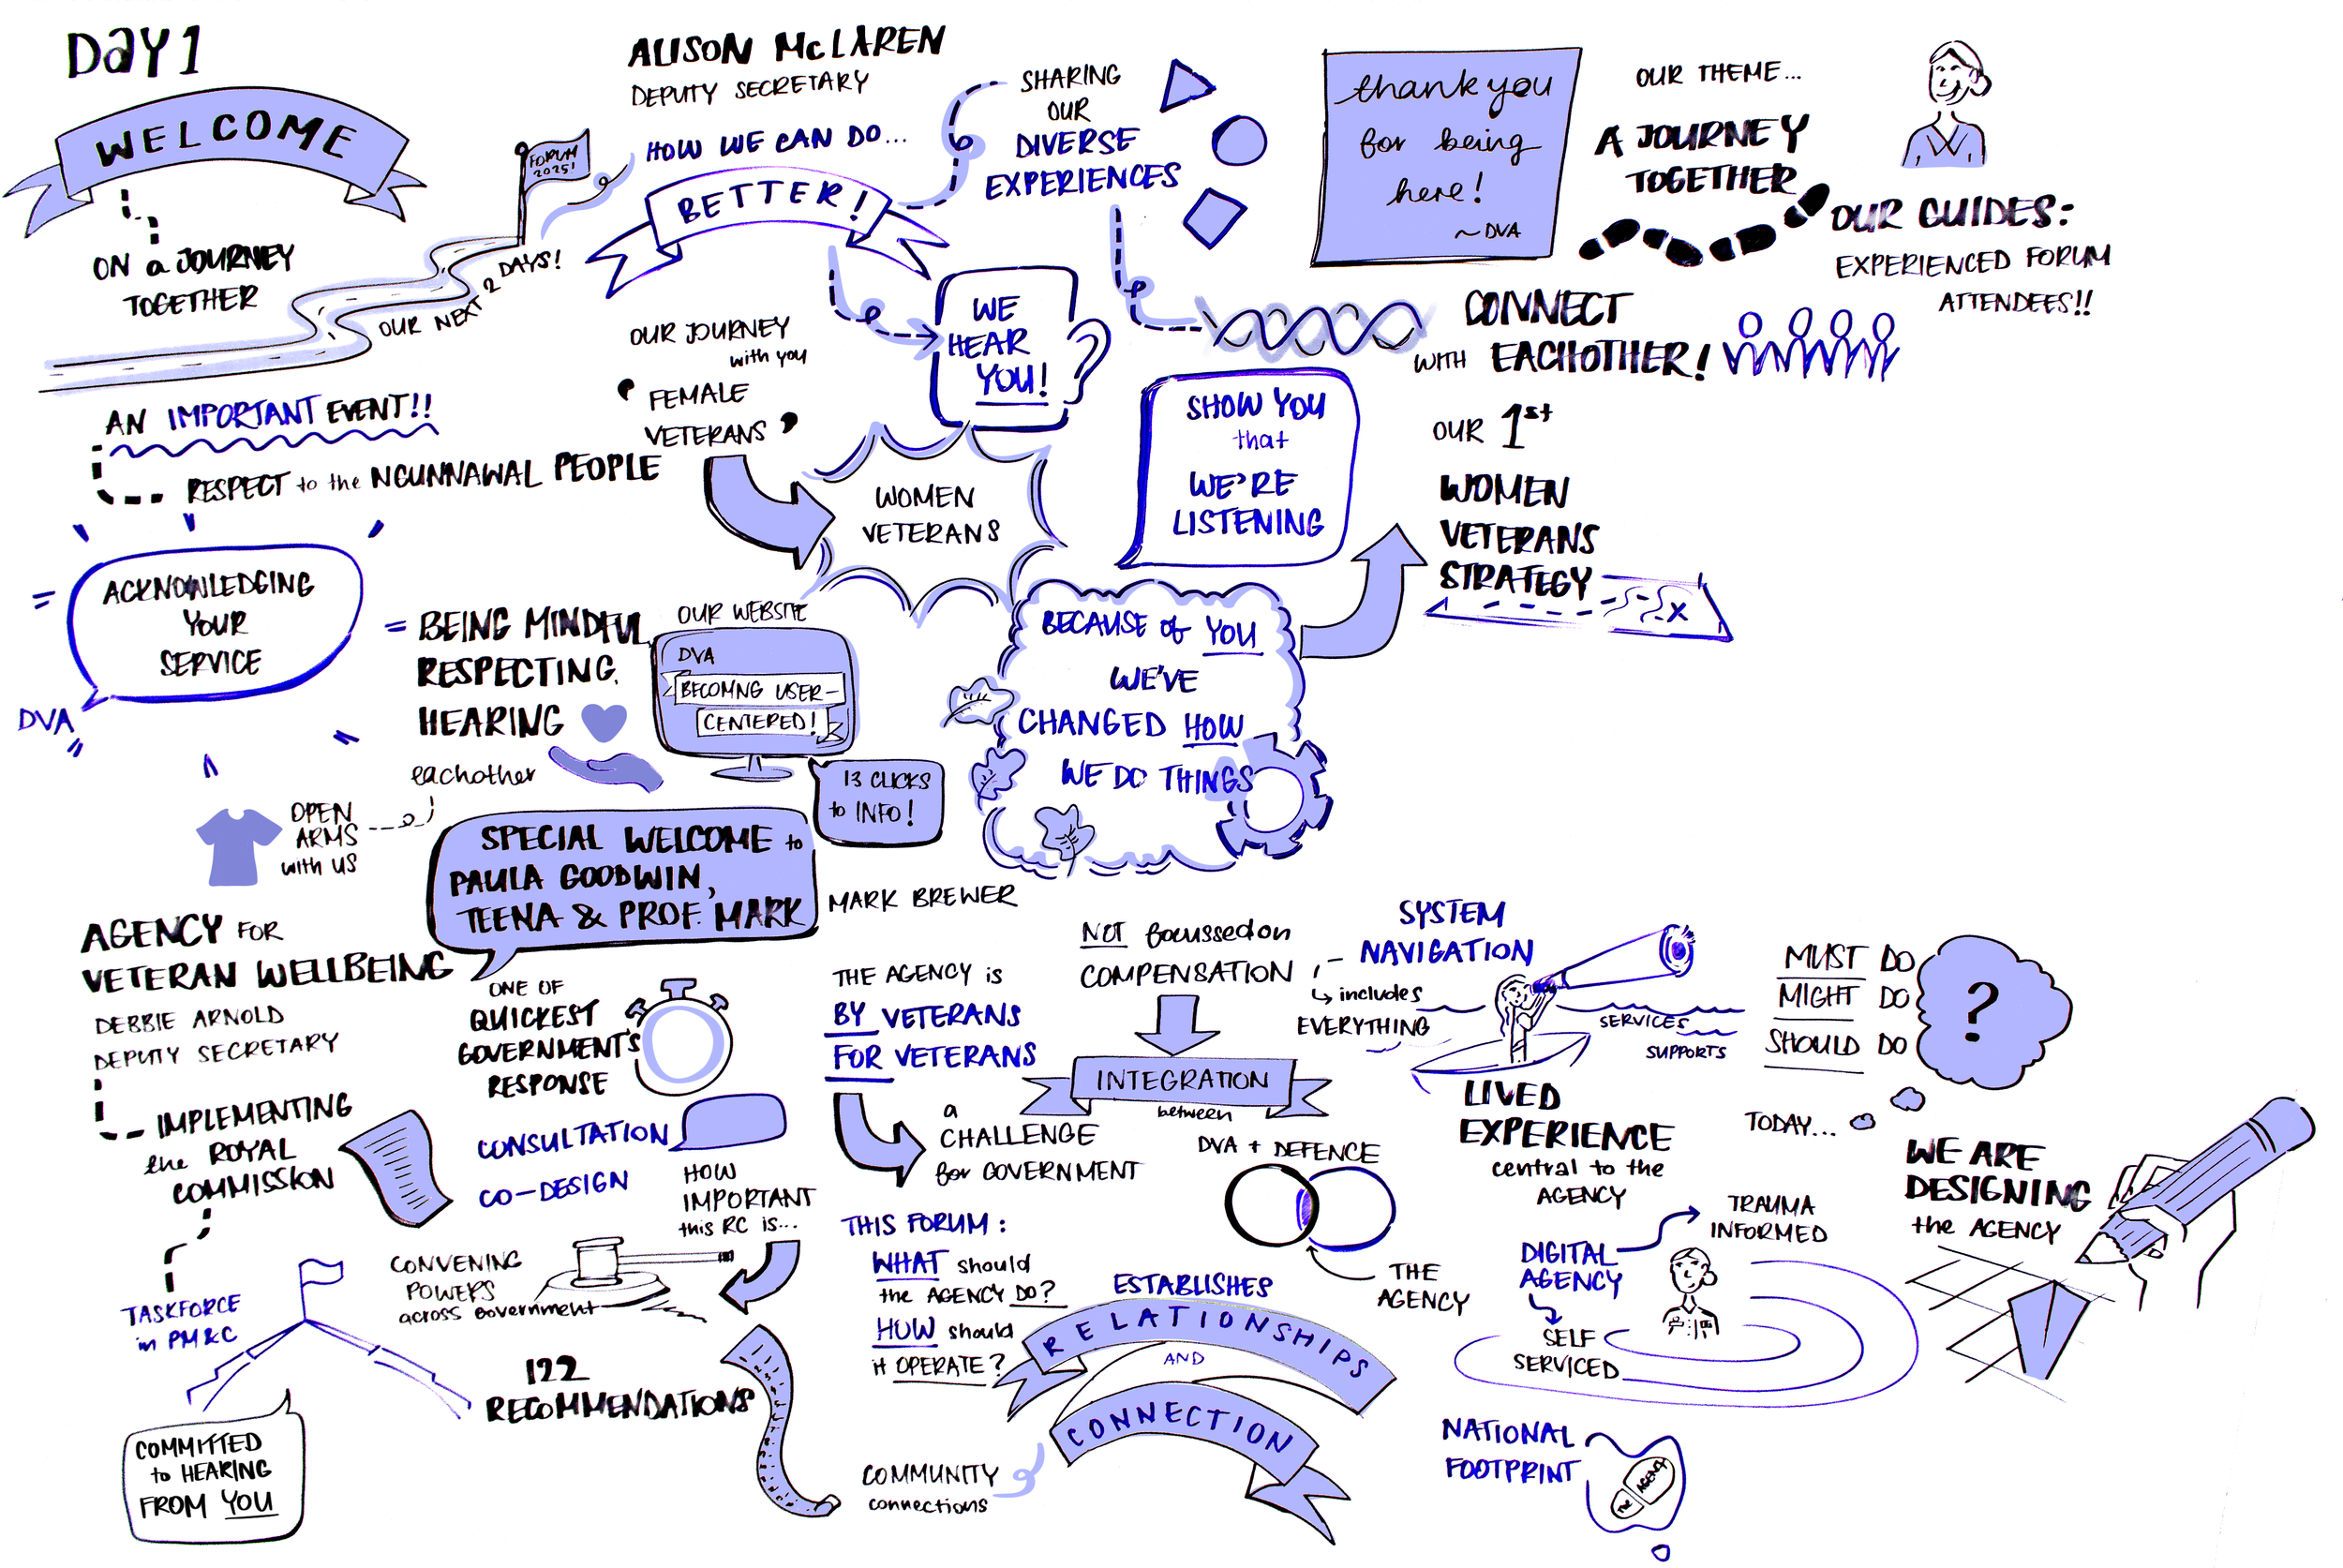 DAY 1
WELCOME
ON a JOURNEY
TOGETHER
OUR NEXT 2 DAYS!
FORUM
2025!
AN IMPORTANT EVENT!!
RESPECT to the NGUNNAWAL PEOPLE
ACKNOWLEDGING
YOUR
SERVICE
DVA
= BEING MINDFUL,
RESPECTING,
HEARING
eachother
OPEN
ARMS
with US
ALISON McLAREN
DEPUTY SECRETARY
HOW WE CAN DO...
BETTER!
SHARING
OUR
DIVERSE
EXPERIENCES
WE
HEAR
YOU!
OUR JOURNEY
with you
' FEMALE
VETERANS '
WOMEN
VETERANS
OUR WEBSITE
DVA
BECOMNG USER-
CENTERED!
13 CLICKS
to INFO!
BECAUSE of YOU
WE'VE
CHANGED HOW
WE DO THINGS
SHOW YOU
that
WE'RE
LISTENING
OUR 1st
WOMEN
VETERANS
STRATEGY
X
thank you
for being
here!
~ DVA
OUR THEME...
A JOURNEY
TOGETHER
OUR GUIDES:
EXPERIENCED FORUM
ATTENDEES!!
CONNECT
WITH EACHOTHER!
SPECIAL WELCOME to
PAULA GOODWIN,
TEENA & PROF. MARK
MARK BREWER
AGENCY FOR
VETERAN WELLBEING
DEBBIE ARNOLD
DEPUTY SECRETARY
IMPLEMENTING
the ROYAL
COMMISSION
TASKFORCE
in PM&C
COMMITTED
to HEARING
FROM YOU
ONE OF
QUICKEST
GOVERNMENT'S
RESPONSE
CONSULTATION
CO-DESIGN
HOW
IMPORTANT
this RC is...
CONVENING
POWERS
across government
122
RECOMMENDATIONS
THE AGENCY is
BY VETERANS
FOR VETERANS
a
CHALLENGE
for GOVERNMENT
THIS FORUM:
WHAT should
the AGENCY DO?
HOW should
it OPERATE?
NOT focussed on
COMPENSATION
INTEGRATION
between
DVA + DEFENCE
THE
AGENCY
ESTABLISHES
RELATIONSHIPS
AND
CONNECTION
COMMUNITY
connections
SYSTEM
NAVIGATION
includes
EVERYTHING
SERVICES
SUPPORTS
LIVED
EXPERIENCE
central to the
AGENCY
DIGITAL
AGENCY
TRAUMA
INFORMED
SELF
SERVICED
NATIONAL
FOOTPRINT
THE AGENCY
MUST DO
MIGHT DO
SHOULD DO
?
TODAY...
WE ARE
DESIGNING
the AGENCY